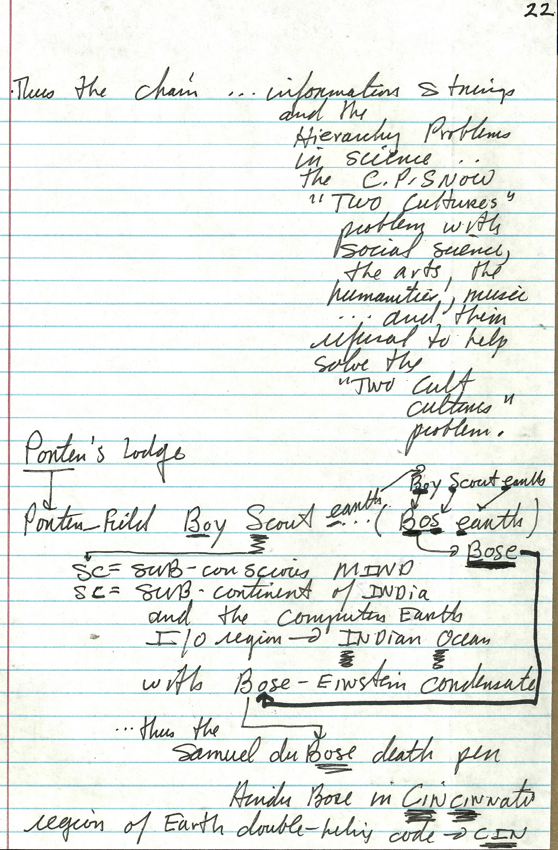 22
Thus the chain ... information strings
and the
Hierarchy Problems
in science ..
the C.P. SNOW
"Two Cultures"
problem with
social science,
the arts, the
humanities, music
... and their
refusal to help
solve the
"Two Cult
cultures"
problem.
Porter's Lodge
Boy Scout earth
Porter-Field Boy Scout earth... (Bos earth)
Bose
SC = SUB-conscious MIND
SC = SUB-continent of INDia
and the Computer Earth
I/O region → INDian Ocean
with Bose-Einstein condensate
...thus the
Samuel du Bose death pen
Hindu Bose in Cincinnati
region of Earth double-helix code → CIN